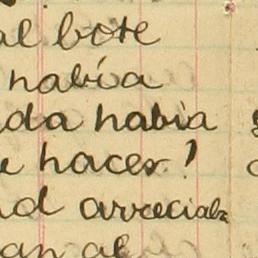 al bote
había
da habia
e hacer!
d arrecial
an al